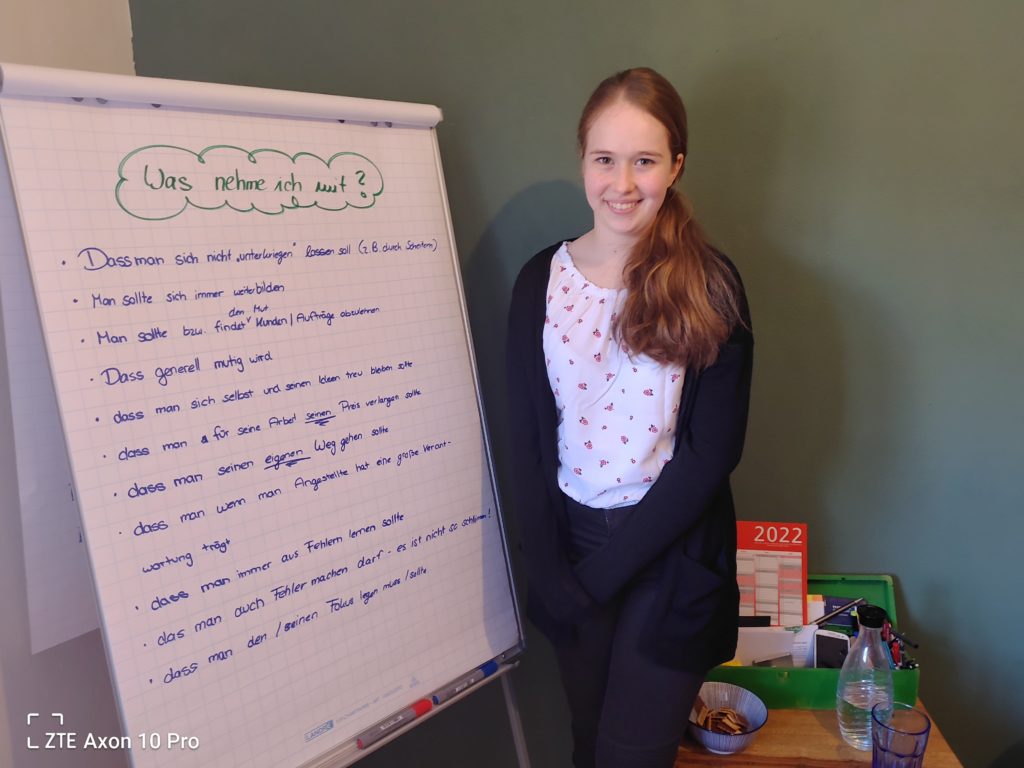 Was nehme ich mit?
• Dass man sich nicht „unterkriegen" lassen soll (z.B. durch Scheitern)
• Man sollte sich immer weiterbilden
den Mut
• Man sollte bzw. findet ˅ Kunden/Aufträge abzulehnen
• Dass generell mutig wird
• dass man sich selbst und seinen Ideen treu bleiben sollte
• dass man für seine Arbeit seinen Preis verlangen sollte
• dass man seinen eigenen Weg gehen sollte
• dass man wenn man Angestellte hat eine große Verant-
wortung trägt
• dass man immer aus Fehlern lernen sollte
• das man auch Fehler machen darf - es ist nicht so schlimm!
• dass man den / seinen Fokus legen muss / sollte
2022
ZTE Axon 10 Pro